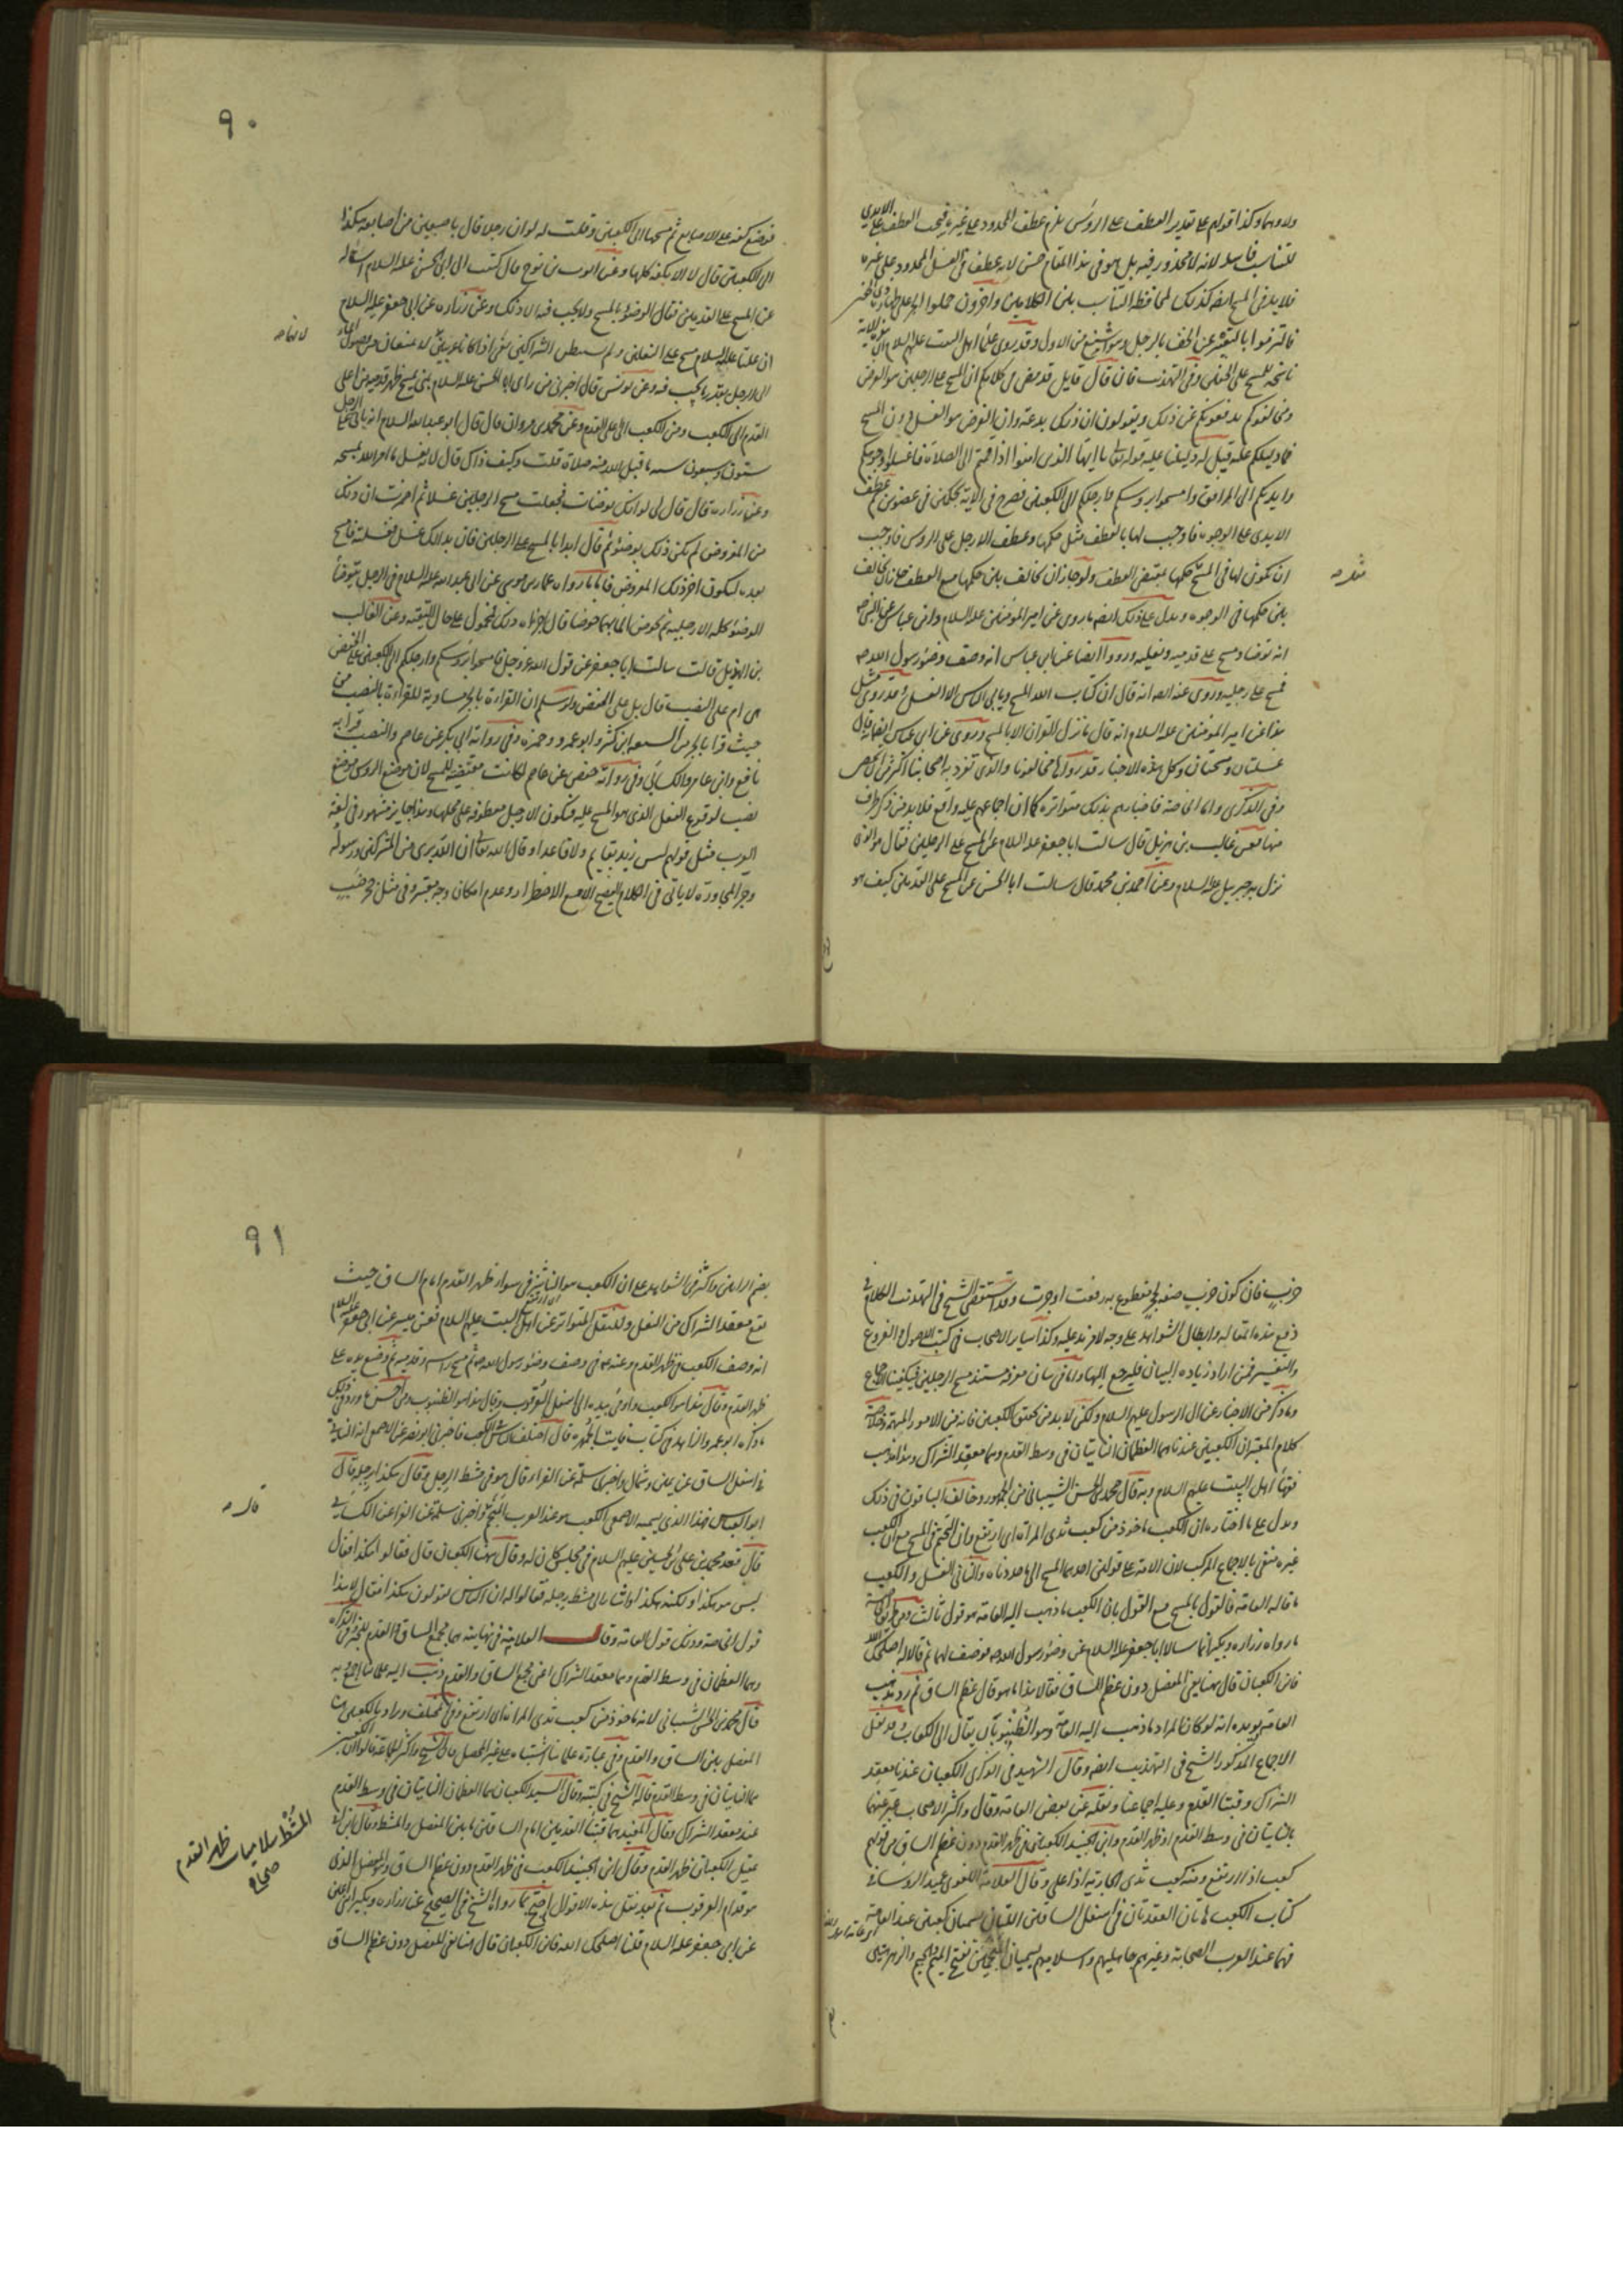 ولاوهما وكذا قولهم على تقدير العطف على الرؤس يلزم عطف المحدود على غيره فيجب العطف على الايدى
للتناسب فاسد لانه لا محذور فيه بل هو فى هذا المقام حسن لانه عطف فى الغسل المحدود على غيره
فلا بد فى المسح ايضا كذلك لمحافظة التناسب بين الكلامين واخرون حملوا الجر على
فالتزموا بالتعبير عن الخف بالرجل وهو اشنع من الاول وقد روى عن اهل البيت عليهم السلام ان هذه الاية
ناسخة للمسح على الخفين وفى التهذيب فان قال قايل قد مضى من كلامكم ان المسح على الرجلين هو الفرض
ومخالفوكم يدفعونكم عن ذلك ويقولون ان ذلك بدعة وان الفرض هو الغسل دون المسح
فما دليلكم عليه قيل له دليلنا عليه قوله تعالى يا ايها الذين امنوا اذا قمتم الى الصلاة فاغسلوا وجوهكم
وايديكم الى المرافق وامسحوا برؤسكم وارجلكم الى الكعبين فصرح فى الاية بحكمين فى عضوين ثم عطف
الايدى على الوجوه فاوجب لها بالعطف مثل حكمها وعطف الارجل على الرؤس فاوجب
ان يكون لها فى المسح حكمها بمقتضى العطف ولو جاز ان يخالف بين حكمها مع العطف جاز ان يخالف
بين حكمها فى الوجوه ويدل على ذلك ايضا ما روى عن امير المؤمنين عليه السلام وابن عباس عن النبى ص
انه توضا ومسح على قدميه ونعليه ورووا ايضا عن ابن عباس انه وصف وضوء رسول الله ص
فمسح على رجليه وروى عنه ايضا انه قال ان كتاب الله المسح ويابى الناس الا الغسل وقد روى مثل
هذا عن امير المؤمنين عليه السلام انه قال ما نزل القران الا بالمسح وروى عن ابن عباس ايضا انه قال
غسلتان ومسحتان وكل هذه الاخبار قد رواها مخالفونا والذى تفرد به اصحابنا اكثر من ان يحصى
وفى الذكرى واما الخاصة فاخبارهم بذلك متواترة كما ان اجماعهم عليه واقع فلا بد من ذكر طرف
منها فعن غالب بن هذيل قال سالت ابا جعفر عليه السلام عن المسح على الرجلين فقال هو الذى
نزل به جبريل عليه السلام وعن احمد بن محمد قال سالت ابا الحسن عن المسح على القدمين كيف هو
٩٠
فوضع كفه على الاصابع ثم مسحها الى الكعبين وقلت له لو ان رجلا قال باصبعين من اصابعه هكذا
الى الكعبين قال لا الا بكفه كلها وعن ايوب بن نوح قال كتبت الى ابى الحسن عليه السلام اسأله
عن المسح على القدمين فقال الوضوء بالمسح ولا يجب فيه الا ذلك وعن زرارة عن ابى جعفر عليه السلام
ان عليا عليه السلام مسح على النعلين ولم يستبطن الشراكين
الى الرجل بقدر ما يجب فيه وعن يونس قال اخبرنى من راى ابا الحسن عليه السلام بمنى يمسح ظهر قدميه من اعلى
القدم الى الكعب ومن الكعب الى اعلى القدم وعن محمد بن مروان قال قال ابو عبد الله السلام انه ياتى على الرجل
ستون وسبعون سنة ما قبل الله منه صلاة قلت وكيف ذاك قال لانه يغسل ما امر الله بمسحه
وعن زرارة قال قال لى لو انك توضات فجعلت مسح الرجلين غسلا ثم اضمرت ان ذلك
من المفروض لم يكن ذلك بوضوء ثم قال ابدا بالمسح على الرجلين فان بدا لك غسل فغسلته فامسح
بعده ليكون اخر ذلك المفروض فاما ما رواه عمار بن موسى عن ابى عبد الله عليه السلام فى الرجل يتوضأ
الوضوء كله الا رجليه ثم يخوض الماء بهما خوضا قال اجزاه ذلك فمحمول على حال التقية وعن الغالب
بن الهذيل قال سالت ابا جعفر عن قول الله عز وجل فامسحوا برؤسكم وارجلكم الى الكعبين على الخفض
هى ام على النصب قال بل هى على الخفض ولو سلم ان القراءة بالجر مساوية للقراءة بالنصب من
حيث قرا بالجر من السبعة ابن كثير وابو عمرو وحمزة وفى رواية ابى بكر عن عاصم والنصب قرا به
نافع وابن عامر والكسائى وفى رواية حفص عن عاصم لكانت مقتضية للمسح لان موضع الرؤس موضع
نصب لوقوع الفعل الذى هو المسح عليه فتكون الارجل معطوفة على محلها وهذا جايز مشهور فى لغة
العرب مثل قولهم ليس زيد بقايم ولا قاعدا وقال الله تعالى ان الله برى من المشركين ورسوله
وجر المجاورة لا ياتى فى الكلام الفصيح الا مع الاضطرار وعدم امكان وجه معتبر وفى مثل جحر ضب
خرب فان كون خرب صفة لجحر مقطوع به رفعت او جرت وقد استقصى الشيخ فى التهذيب الكلام فى
دفع هذه المقالة وابطال الشواهد على وجه لا مزيد عليه وكذا ساير الاصحاب فى كتب الاصول والفروع
والتفسير فمن اراد زيادة البيان فليرجع اليها واما فى بيان معرفة مستند مسح الرجلين فيكفينا الاجماع
وما ذكر من الاخبار عن ال الرسول عليهم السلام ولكن لا بد من تحقق الكعبين فانه من الامور المهمة
كلام المعتبر ان الكعبين عندنا هما العظمان الناتيان فى وسط القدم وهما معقد الشراك وهذا مذهب
فقهاء اهل البيت عليهم السلام وبه قال محمد بن الحسن الشيبانى من الجمهور وخالف الباقون فى ذلك
ويدل على ما اختاره ان الكعب ماخوذ من كعب ثدى المراة اى ارتفع
غيره منفى بالاجماع المركب لان الامة على قولين احدهما المسح الى ما حددناه والثانى الغسل والكعب
ما قاله العامة فالقول بالمسح مع القول بان الكعب ما ذهب اليه العامة هو قول ثالث
ما رواه زرارة وبكير انهما سالا ابا جعفر عليه السلام عن وضوء رسول الله ص فوصف لهما ثم قالا له اصلحك الله
فاين الكعبان قال ههنا يعنى المفصل دون عظم الساق فقالا هذا ما هو قال عظم الساق
العامة يؤيده انه لو كان المراد ما ذهب اليه العامة وهو الظنبوبان يقال الى الكعاب وقد نقل
الاجماع المذكور الشيخ فى التهذيب ايضا وقال الشهيد فى الذكرى الكعبان عندنا معقد
الشراك وقبتا القدم وعليه اجماعنا ونقله عن بعض العامة وقال واكثر الاصحاب عبر عنهما
بالناتيان فى وسط القدم او ظهر القدم وابن الجنيد الكعب فى ظهر القدم دون عظم الساق من قولهم
كعب اذا ارتفع ومنه كعب ثدى الجارية اذا علا وقال العلامة اللغوى عميد الروساء فى
كتاب الكعب هاتان العقدتان فى اسفل الساقين اللتان تسميان كعبين عند العامة
فهما عند العرب الصحابة وغيرهم جاهليهم واسلاميهم يسميان المنجمين بفتح الميم والجيم
٩١
بضم الراء واكثر فى الشواهد على ان الكعب هو الناشز فى سواء ظهر القدم امام الساق حيث
يقع معقد الشراك من النعل وللنقل المتواتر عن اهل البيت عليهم السلام فعن ميسر عن ابى جعفر عليه السلام
انه وصف الكعب فى ظهر القدم وعنه ع فى وصف وضوء رسول الله ص ثم مسح راسه وقدميه ثم وضع يده على
ظهر القدم وقال هذا هو الكعب واومى بيده الى اسفل العرقوب وقال هذا هو الظنبوب
ما ذكره ابو عمرو الزاهد فى كتاب فايت الجمهرة قال اختلف الناس فى الكعب فاخبرنى ابو نصر عن الاصمعى انه الناتى
فى اسفل الساق عن يمين وشمال واخبرنى سلمة عن الفراء قال هو فى مشط الرجل وقال هكذا برجله قال
ابو العباس فهذا الذى يسميه الاصمعى الكعب هو عند العرب المنجم واخبرنى سلمة عن الفرا عن الكسائى
قال قعد محمد بن على بن الحسين عليهم السلام فى مجلس كان له وقال ههنا الكعبان قال فقالوا هكذا فقال
ليس هو هكذا ولكنه هكذا واشار الى مشط رجله فقالوا له ان الناس يقولون هكذا فقال لا هذا
قول الخاصة وذلك قول العامة وقال العلامة فى نهايته هما مجمع الساق والقدم
وهما العظمان فى وسط القدم وهما معقد الشراك اعنى مجمع الساق والقدم ذهب اليه علمائنا اجمع وبه
قال محمد بن الحسن الشيبانى لانه ماخوذ من كعب ثدى المراة اى ارتفع وفى المختلف ويراد بالكعبين هنا
المفصل بين الساق والقدم وفى عبارة علمائنا اشتباه على غير المحصل فان الشيخ واكثر الجماعة قالوا ان الكعبين
هما الناتيان فى وسط القدم قاله الشيخ فى كتبه وقال السيد الكعبان هما العظمان الناتيان فى وسط القدم
عند معقد الشراك وقال المفيد هما قبتا القدمين امام الساقين ما بين المفصل والمشط وقال ابن ابى
عقيل الكعبان ظهر القدم وقال ابن الجنيد الكعب فى ظهر القدم دون عظم الساق وهو المفصل الذى
هو قدام العرقوب ثم بعد نقل هذه الاقوال احتج بما رواه الشيخ فى الصحيح عن زرارة وبكير ابنى اعين
عن ابى جعفر عليه السلام قلنا اصلحك الله فاين الكعبان قال ههنا يعنى المفصل دون عظم الساق
المشط سلاميات ظهر القدم
صحاح